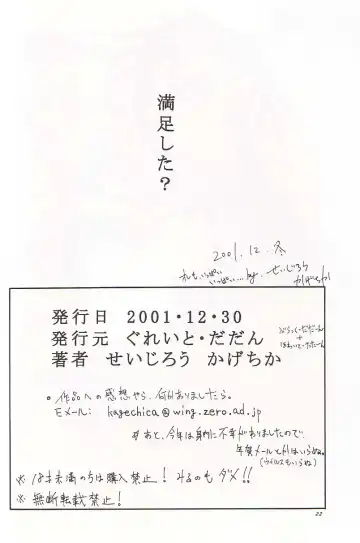 満足した?
2001.12.冬
by.せいじろう
かげちか
発行日 2001・12・30
発行元 ぐれいと・だだん
著者 せいじろう かげちか
ぶらっくだだーん
+
ほわいとだだーん
。作品への感想やら、何かありましたら。
Eメール: kagechica@wing.zero.ad.jp
#あと、今年は身内に不幸がありましたので、
年賀メールとかはいらねぇ。
(ウイルスもいらね)
※18才未満の方は購入禁止!みるのもダメ!!
※無断転載禁止!
22